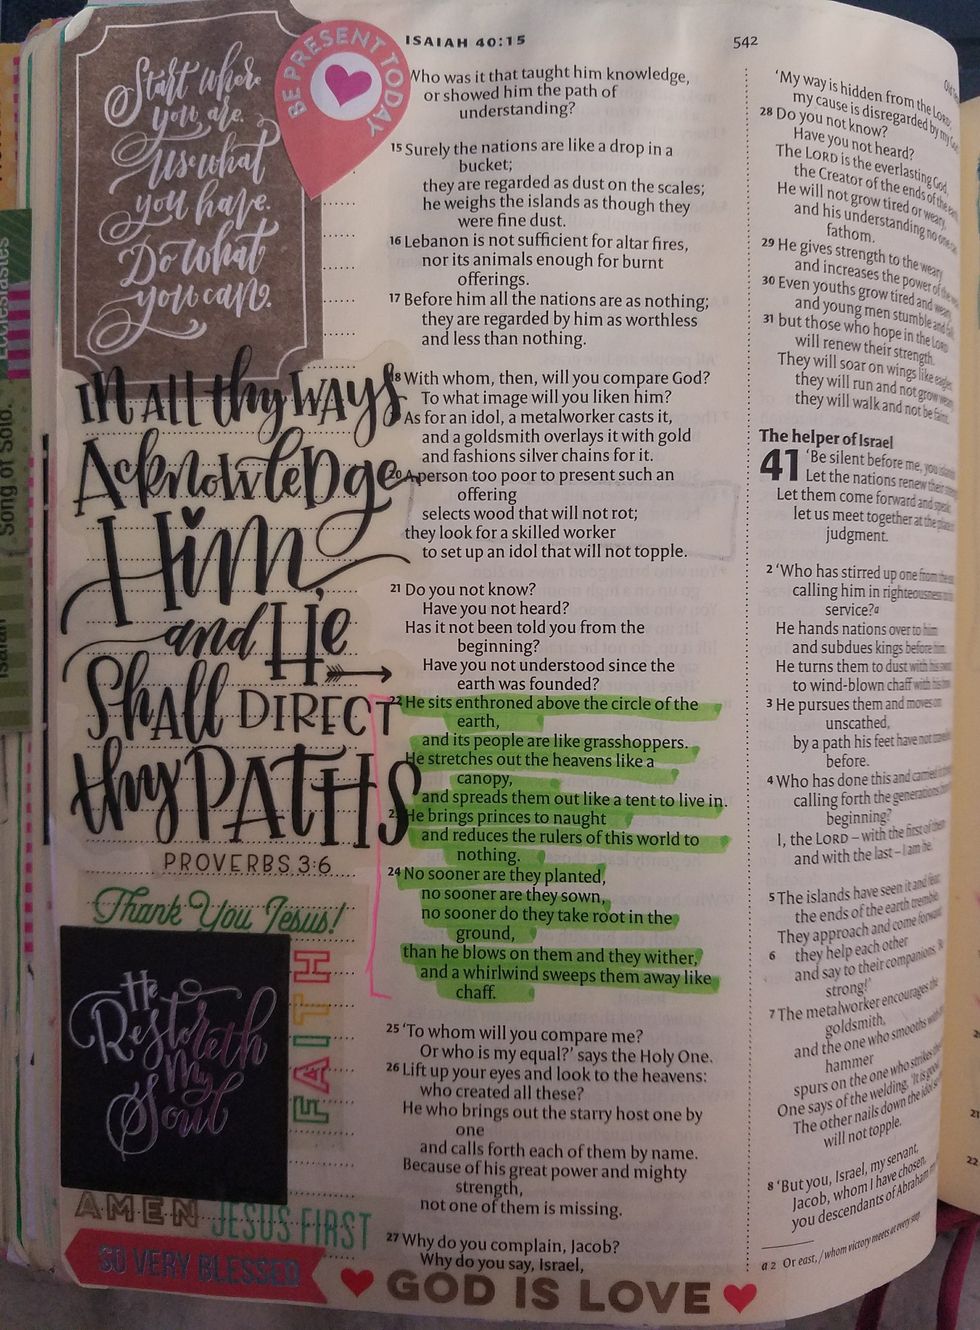 ISAIAH 40:15
542
Start where
you are.
Use what
you have.
Do what
you can.
BE PRESENT TODAY
In all thy ways
Acknowledge
Him,
and He
Shall DIRECT
thy PATHS
PROVERBS 3:6
Thank You Jesus!
He
Restoreth
My
Soul
FAITH
AMEN JESUS FIRST
SO VERY BLESSED
GOD IS LOVE
Who was it that taught him knowledge,
or showed him the path of
understanding?
15 Surely the nations are like a drop in a
bucket;
they are regarded as dust on the scales;
he weighs the islands as though they
were fine dust.
16 Lebanon is not sufficient for altar fires,
nor its animals enough for burnt
offerings.
17 Before him all the nations are as nothing;
they are regarded by him as worthless
and less than nothing.
18 With whom, then, will you compare God?
To what image will you liken him?
As for an idol, a metalworker casts it,
and a goldsmith overlays it with gold
and fashions silver chains for it.
20 A person too poor to present such an
offering
selects wood that will not rot;
they look for a skilled worker
to set up an idol that will not topple.
21 Do you not know?
Have you not heard?
Has it not been told you from the
beginning?
Have you not understood since the
earth was founded?
22 He sits enthroned above the circle of the
earth,
and its people are like grasshoppers.
He stretches out the heavens like a
canopy,
and spreads them out like a tent to live in.
23 He brings princes to naught
and reduces the rulers of this world to
nothing.
24 No sooner are they planted,
no sooner are they sown,
no sooner do they take root in the
ground,
than he blows on them and they wither,
and a whirlwind sweeps them away like
chaff.
25 ‘To whom will you compare me?
Or who is my equal?’ says the Holy One.
26 Lift up your eyes and look to the heavens:
who created all these?
He who brings out the starry host one by
one
and calls forth each of them by name.
Because of his great power and mighty
strength,
not one of them is missing.
27 Why do you complain, Jacob?
Why do you say, Israel,
‘My way is hidden from the LORD
my cause is disregarded by my
28 Do you not know?
Have you not heard?
The LORD is the everlasting God,
the Creator of the ends of the
He will not grow tired or weary,
and his understanding no one can
fathom.
29 He gives strength to the weary
and increases the power of the
30 Even youths grow tired and weary,
and young men stumble and
31 but those who hope in the LORD
will renew their strength.
They will soar on wings like eagles;
they will run and not grow weary,
they will walk and not be faint.
The helper of Israel
41 ‘Be silent before me, you
Let the nations renew their
Let them come forward and speak;
let us meet together at the place of
judgment.
2 ‘Who has stirred up one from the
calling him in righteousness
service?a
He hands nations over to him
and subdues kings before him.
He turns them to dust with his
to wind-blown chaff with his
3 He pursues them and moves on
unscathed,
by a path his feet have not
before.
4 Who has done this and carried it
calling forth the generations
beginning?
I, the LORD – with the first of them
and with the last – I am he.’
5 The islands have seen it and fear;
the ends of the earth tremble.
They approach and come forward;
6 they help each other
and say to their companions,
strong!’
7 The metalworker encourages the
goldsmith,
and the one who smooths with
hammer
spurs on the one who strikes the
One says of the welding, ‘It is good.’
The other nails down the idol
will not topple.
8 ‘But you, Israel, my servant,
Jacob, whom I have chosen,
you descendants of Abraham
a 2 Or east, / whom victory meets at every step
Ecclesiastes
Song of Solo.
Isaiah
22